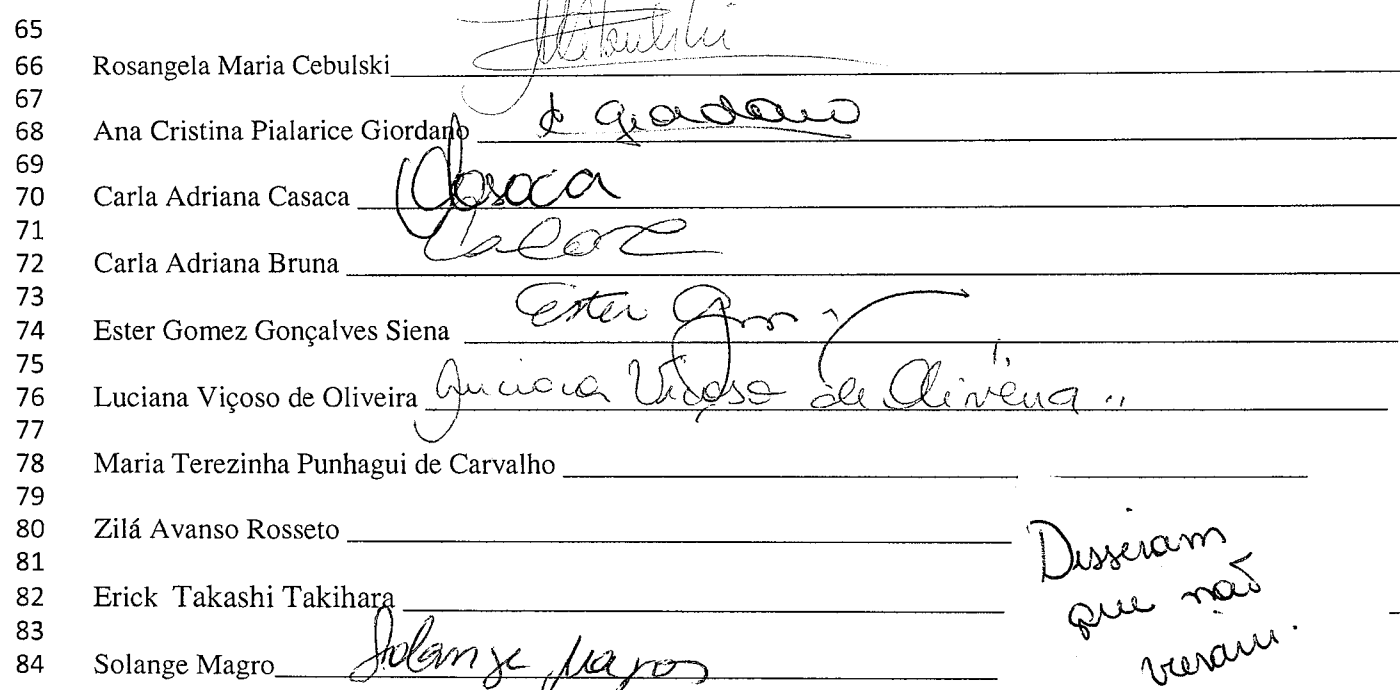 65
66 Rosangela Maria Cebulski
67
68 Ana Cristina Pialarice Giordano Giordano
69
70 Carla Adriana Casaca Casaca
71
72 Carla Adriana Bruna
73
74 Ester Gomez Gonçalves Siena Ester
75
76 Luciana Viçoso de Oliveira Luciana Viçoso de Oliveira
77
78 Maria Terezinha Punhagui de Carvalho
79
80 Zilá Avanso Rosseto
Disseram
81
82 Erick Takashi Takihara
que não
83
84 Solange Magro Solange Magro
vieram.